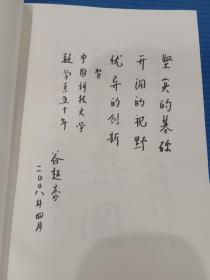 坚实的基础
开阔的视野
优异的创新
贺
中国科技大学
数学系五十年
谷超豪
二〇〇八年四月